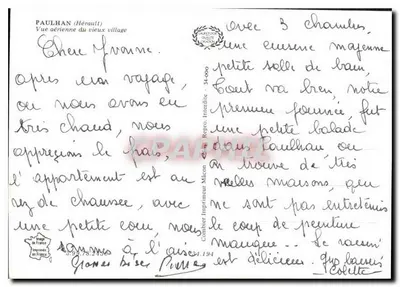 PAULHAN (Hérault)
Vue aérienne du vieux village
Chère Yvonne.
après un voyage,
ou nous avons eu
très chaud, nous
apprécions le pais,
l'appartement est au
rez de chaussée, avec
une petite cour, nous
sommes à l'aise
Grosses bises
avec 3 chambres,
une cuisine moyenne
petite salle de bain,
Tout va bien, notre
première journée, fut
une petite balade
dans Paulhan ou
on trouve de très
vieilles maisons, que
ne sont pas entretenies
le coup de peinture
manque - Le raisin
est délicieux. Gros baisers
Colette
Combier Imprimeur Mâcon